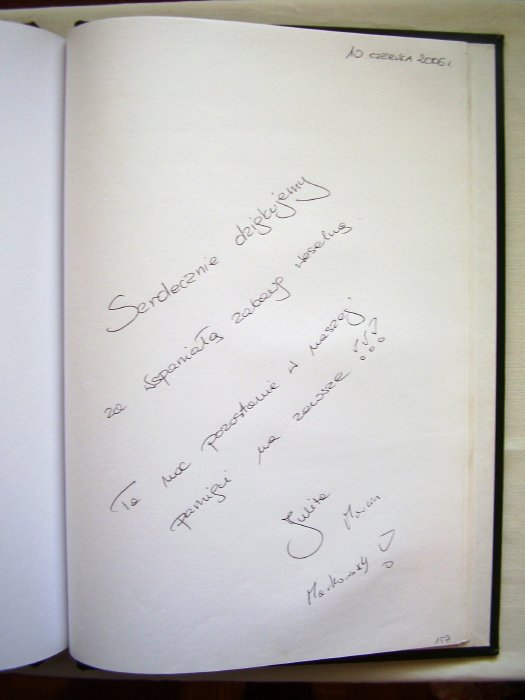 10 czerwca 2006 r
Serdecznie dziękujemy
za wspaniałą zabawę weselną.
Ta noc pozostanie w naszej
pamięci na zawsze !!!
Julita
157